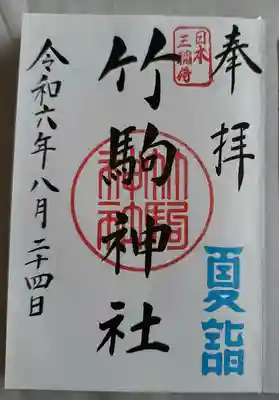 奉拝
夏詣
日本
三稲荷
竹駒神社
竹駒
神社
令和六年八月二十四日